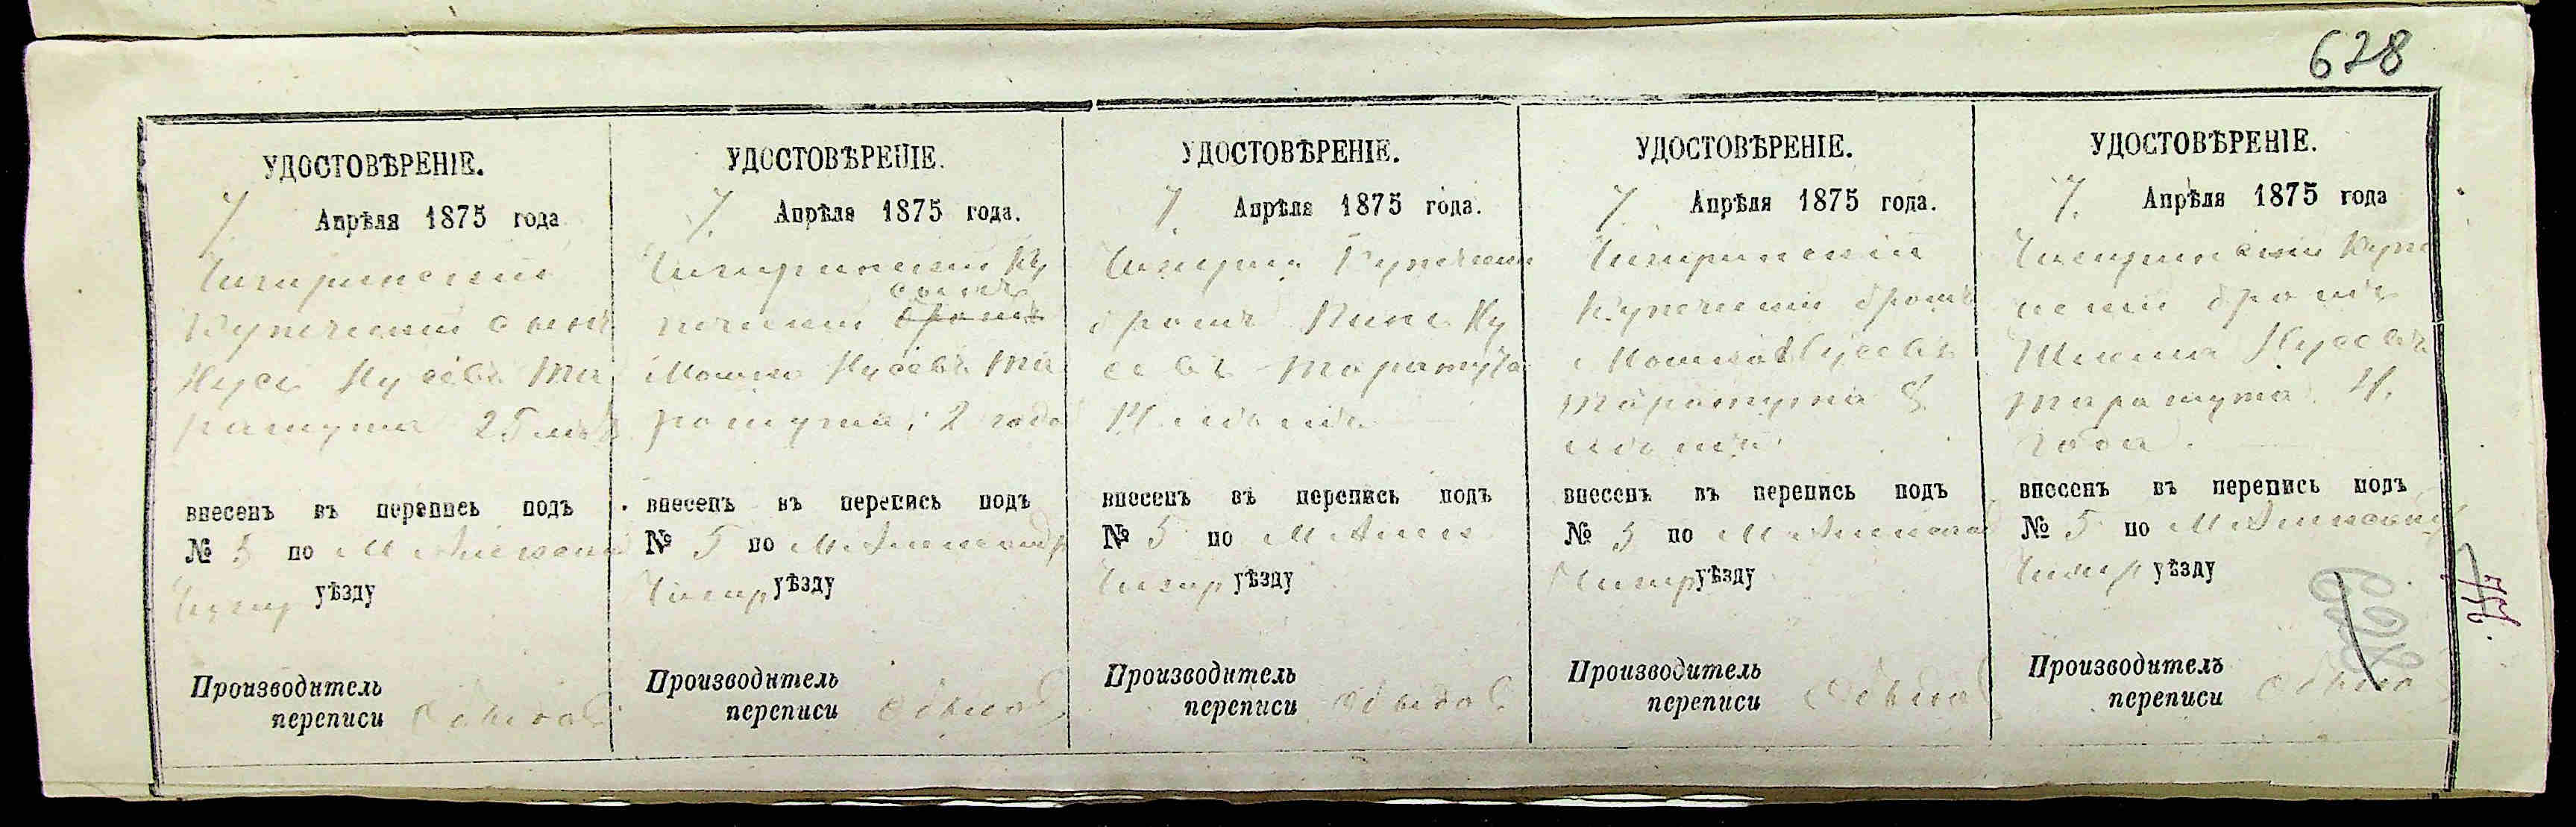 628
УДОСТОВѢРЕНІЕ.
7. Апрѣля 1875 года
Чигиринскій
Купеческій сынъ
Нусъ Нусевъ Та
ратута 25 лѣтъ
внесенъ въ перепись подъ
№ 5 по М.
Чигир уѣзду
Производитель
переписи
УДОСТОВѢРЕНІЕ.
7. Апрѣля 1875 года.
Чигиринскій Ку
сынъ
печескій братъ
Мошко Нусевъ Та
ратута, 2 года
внесенъ въ перепись подъ
№ 5 по М.
Чигир уѣзду
Производитель
переписи
УДОСТОВѢРЕНІЕ.
7. Апрѣля 1875 года.
Чигирин Купеческій
братъ Ну
севъ Таратута
лѣтъ
внесенъ въ перепись подъ
№ 5 по М.
Чигир уѣзду
Производитель
переписи
УДОСТОВѢРЕНІЕ.
7. Апрѣля 1875 года.
Чигиринскій
Купеческій братъ
Мошко Нусевъ
Таратута 8
лѣтъ
внесенъ въ перепись подъ
№ 5 по М.
Чигир уѣзду
Производитель
переписи
УДОСТОВѢРЕНІЕ.
7. Апрѣля 1875 года
Чигиринскій Купе
ческій братъ
Шлема Нусевъ
Таратута 4.
года.
внесенъ въ перепись подъ
№ 5 по М.
Чигир уѣзду
Производитель
переписи